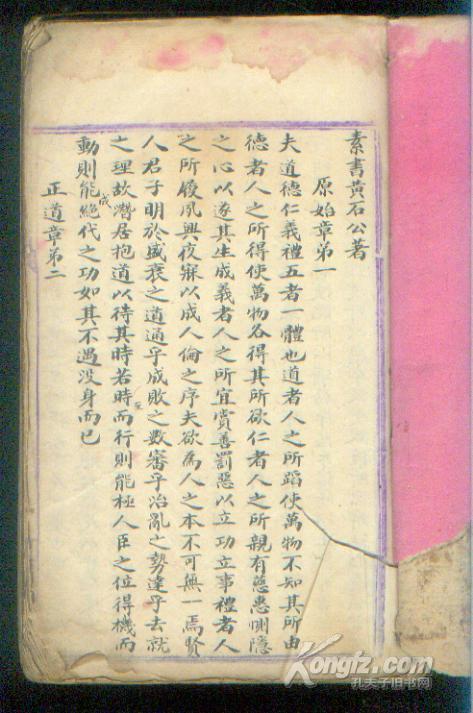 素書黃石公著
原始章第一
夫道德仁義禮五者一體也道者人之所蹈使萬物不知其所由
德者人之所得使萬物各得其所欲仁者人之所親有慈惠惻隱
之心以遂其生成義者人之所宜賞善罰惡以立功立事禮者人
之所履夙興夜寐以成人倫之序夫欲為人之本不可無一焉賢
人君子明於盛衰之道通乎成敗之數審乎治亂之勢達乎去就
之理故潛居抱道以待其時若時至而行則能極人臣之位得機而
動則能成絕代之功如其不遇没身而已
正道章第二
Kongfz.com
孔夫子旧书网